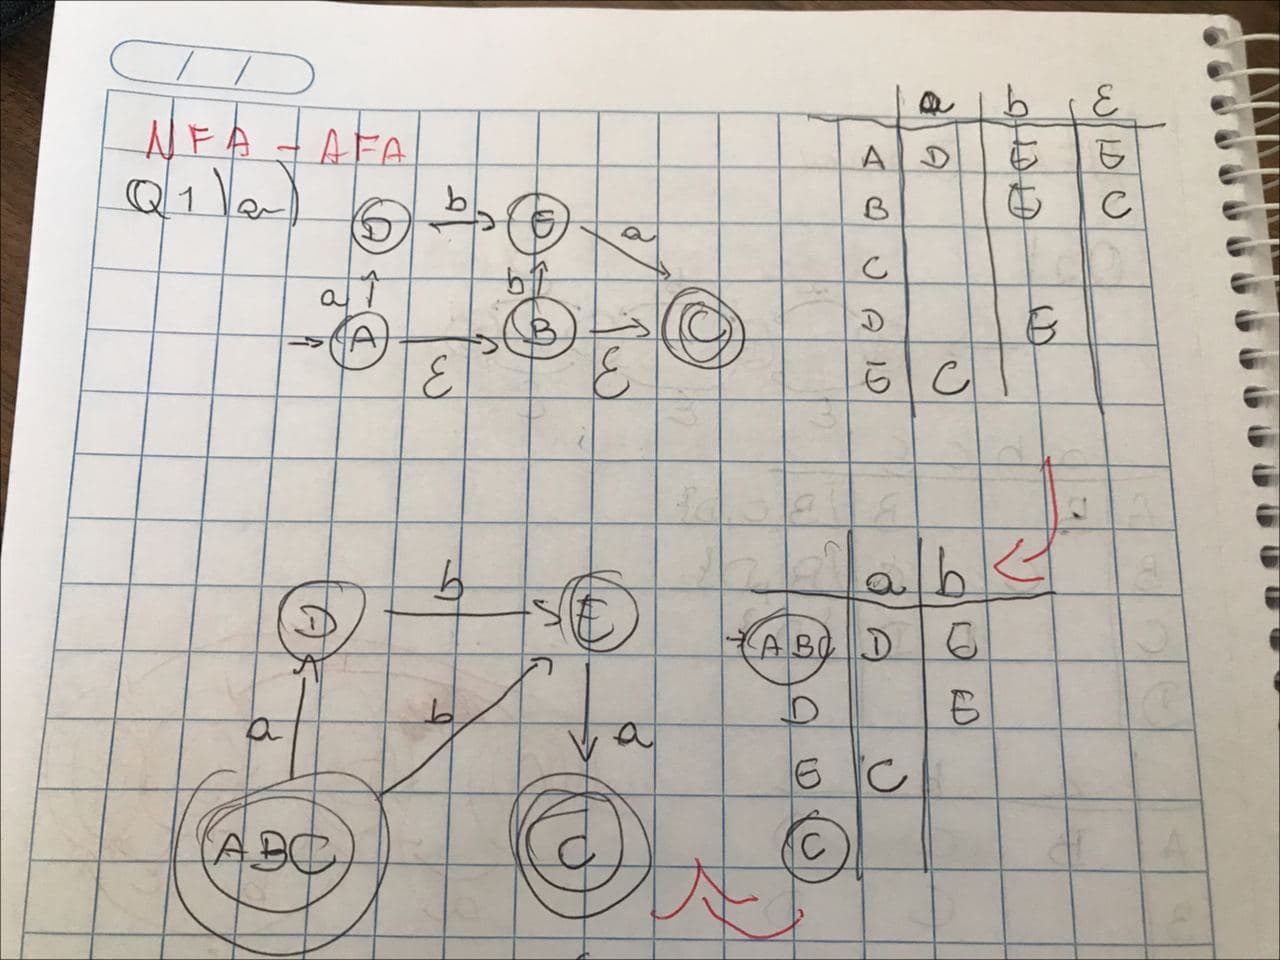 NFA - AFA
Q1) a)
D b E a
a b
A ε B ε C
a b ε
A D E E
B E C
C
D E
E C
D b E
a b a
ABC C
a b
ABC D E
D E
E C
C